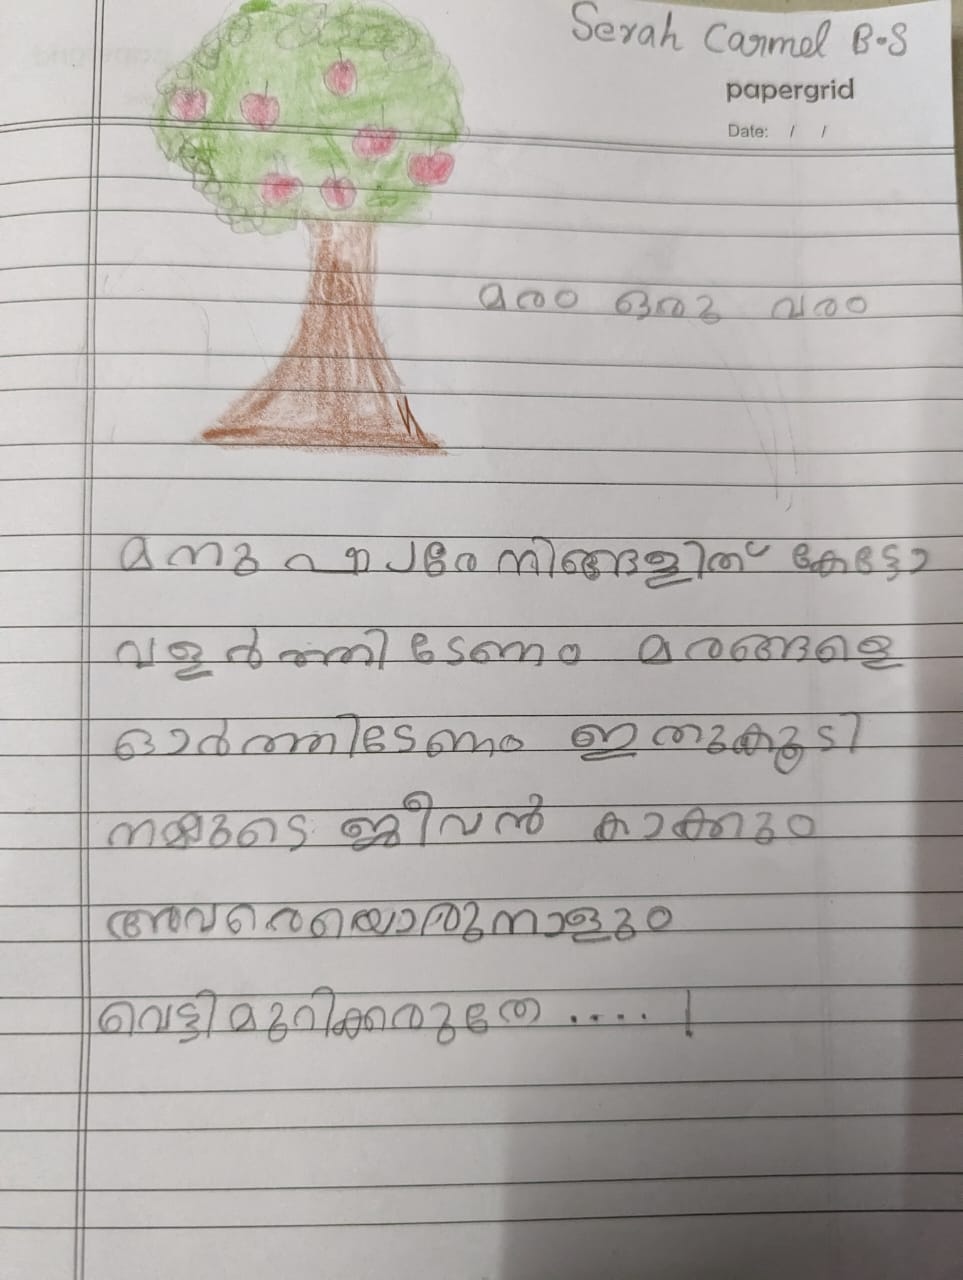 Serah Carmel B.S
papergrid
Date: / /
മരം ഒരു വരം
മനുഷ്യരേ നിങ്ങളിത് കേട്ടോ
വളർത്തിടേണം മരങ്ങളെ
ഓർത്തിടേണം ഇതുകൂടി
നമ്മുടെ ജീവൻ കാക്കും
അവരെയൊരുനാളും
വെട്ടിമുറിക്കരുതേ ....!